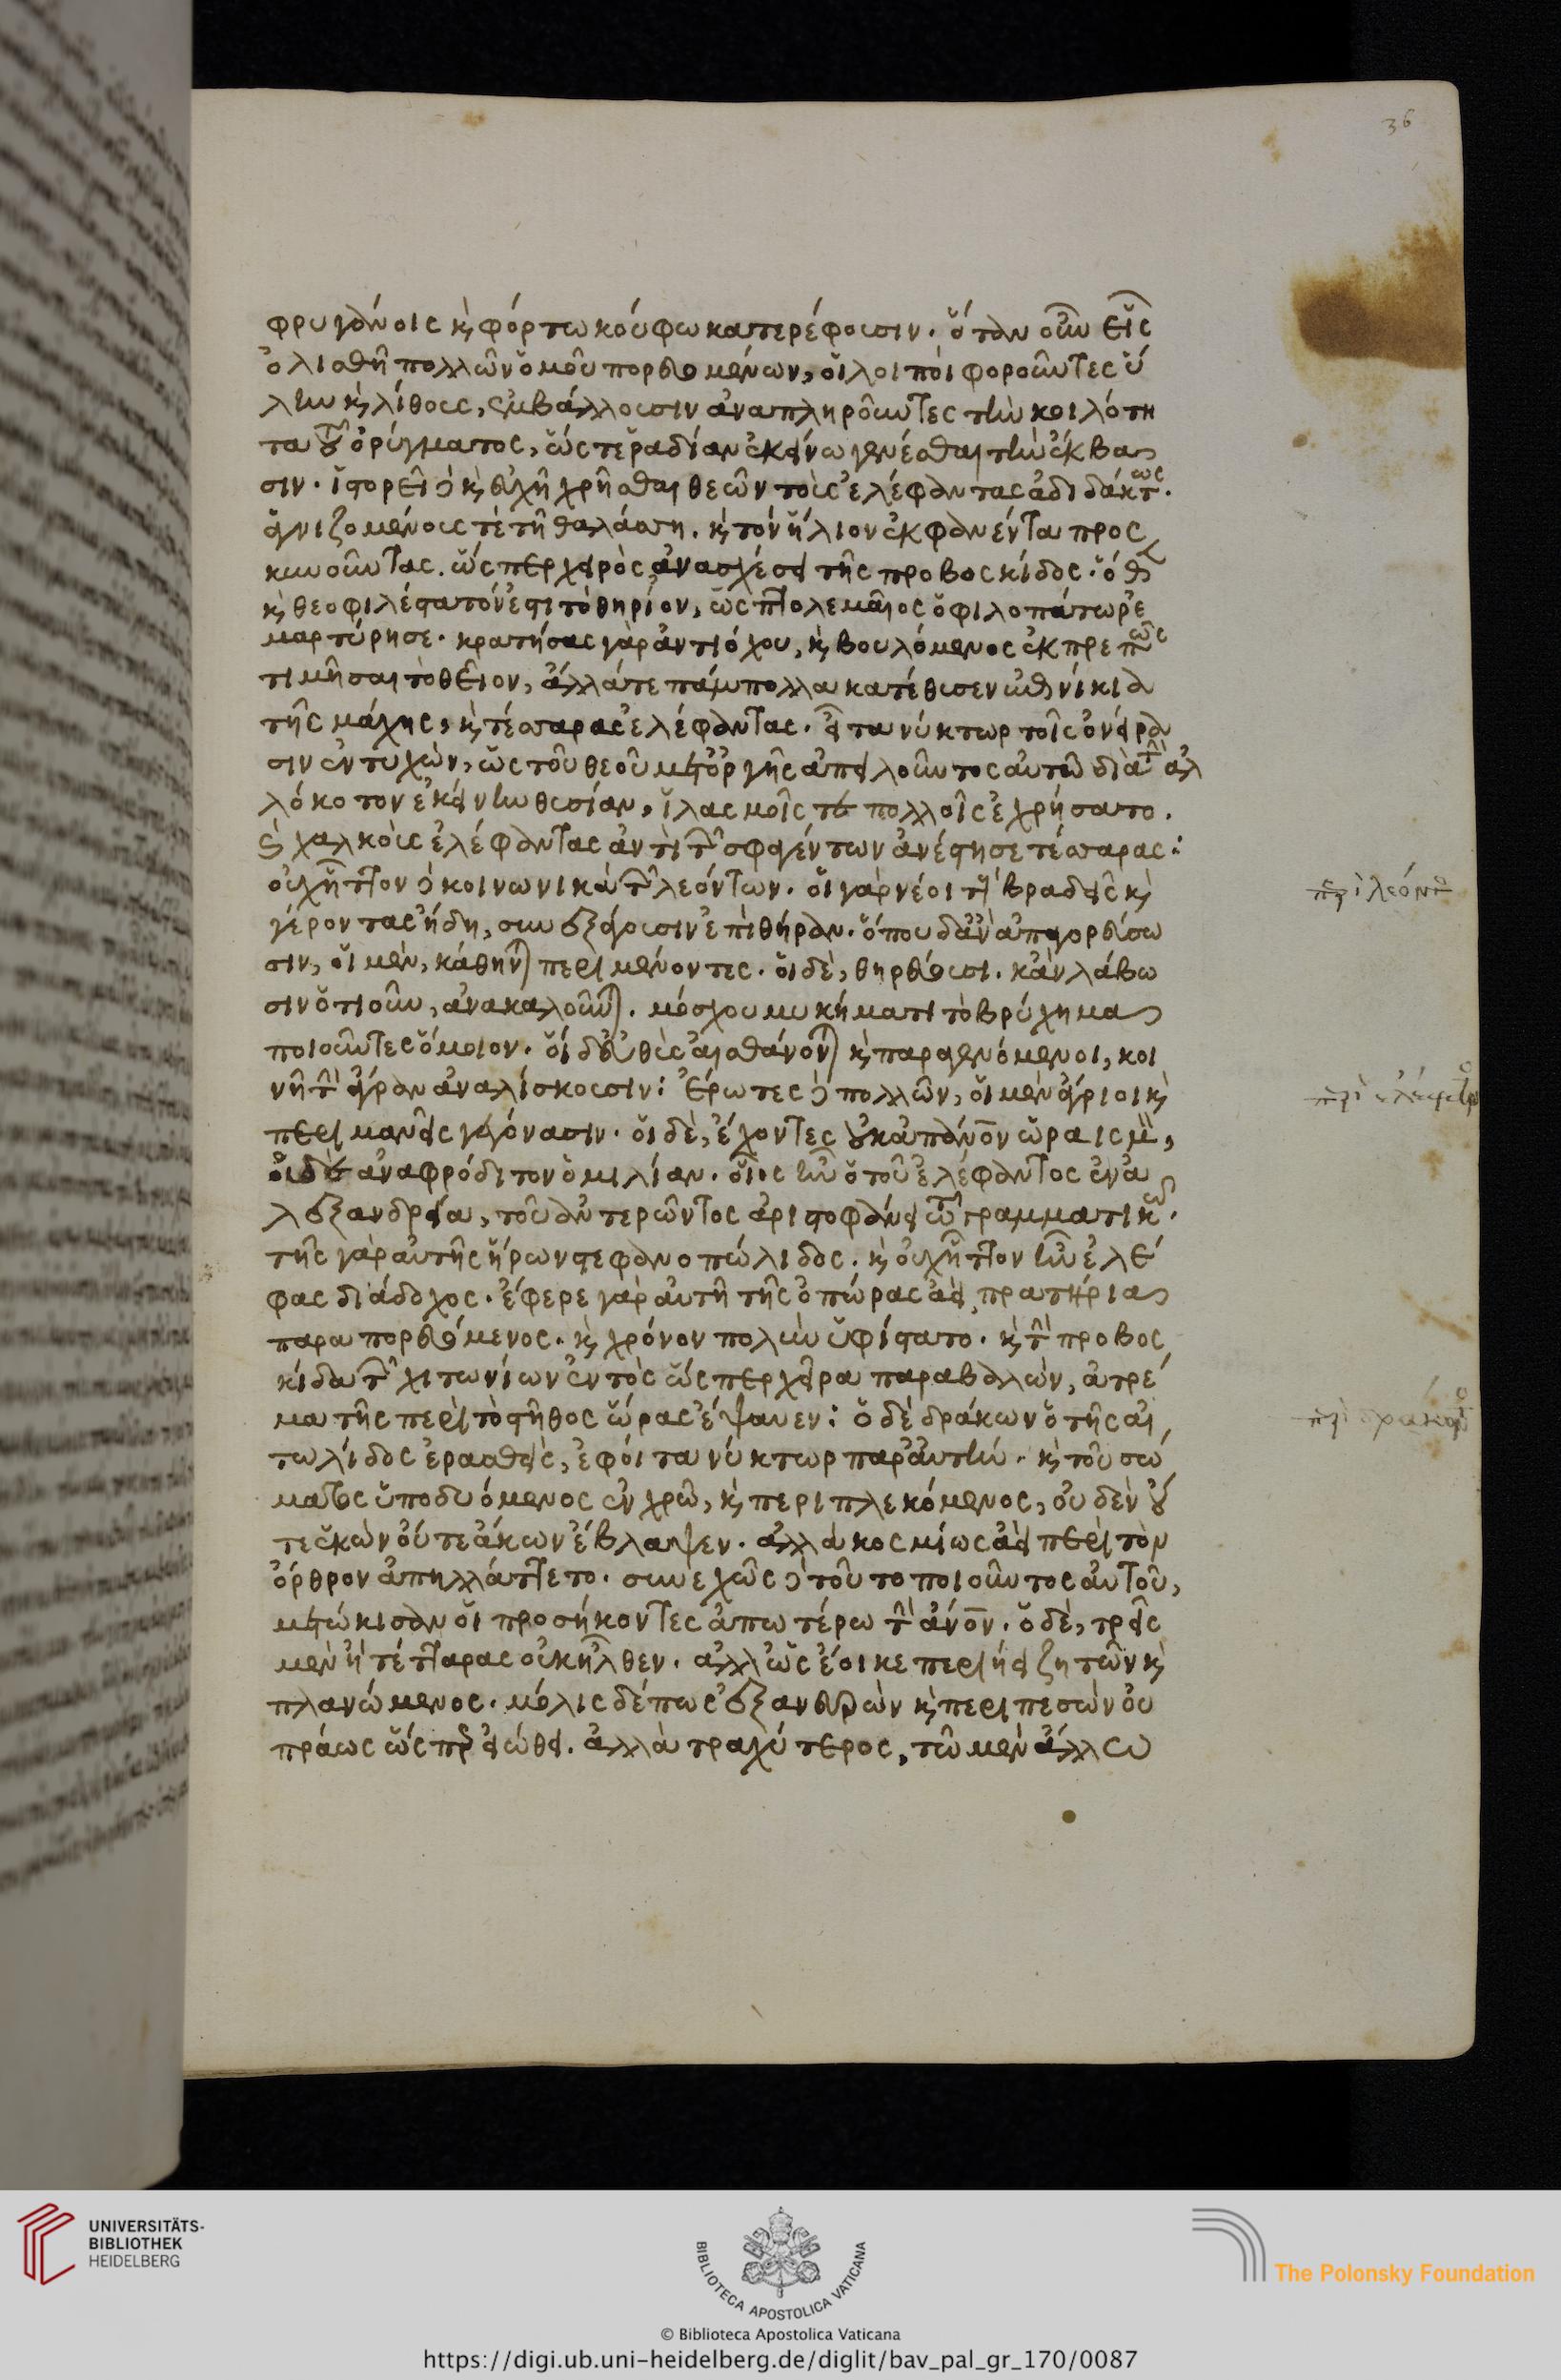 36
φρυγάνοις κ φόρτω κούφω κατερέφουσιν. ὅταν οὖν εἷς
ὀλισθῆ πολλῶν ὁμοῦ πορευομένων, οἱ λοιποὶ φοροῦντες ὕ
λην κ λίθους, ἐμβάλλουσιν ἀναπληροῦντες τὴν κοιλότη
τα τοῦ ὀρύγματος, ὥςτε ῥαδίαν ἐκείνω γενέσθαι τὴν ἔκβα
σιν. ἱστορεῖ δὲ κ εὐχῆ χρῆσθαι θεῶν τοὺς ἐλέφαντας ἀδιδάκτως.
ἁγνιζομένους τὲ τῆ θαλάσση. κ τὸν ἥλιον ἐκφανέντα προς
κυνοῦντας. ὥςπερ χειρὸς ἀνασχέσει τῆς προβοςκίδος. ὅθεν
κ θεοφιλέστατόν ἐστι τὸ θηρίον, ὡς πτολεμαῖος ὁ φιλοπάτωρ ἐ
μαρτύρησε. κρατήσας γὰρ ἀντιόχου, κ βουλόμενος ἐκπρεπῶς
τιμῆσαι τὸ θεῖον, ἄλλά τε πάμπολλα κατέθυσεν ἐπινίκια
τῆς μάχης, κ τέσσαρας ἐλέφαντας. εἶτα νύκτωρ τοῖς ὀνείρα
σιν ἐντυχὼν, ὡς τοῦ θεοῦ μετ ὀργῆς ἀπειλοῦντος αὐτῶ διὰ τὴν ἀλ
λόκοτον ἐκείνην θυσίαν, ἱλασμοῖς τὲ πολλοῖς ἐχρήσατο.
κ χαλκοῦς ἐλέφαντας ἀντὶ τῶν σφαγέντων ἀνέστησε τέσσαρας:
οὐχ ἧττον δὲ κοινωνικὰ τῶν λεόντων. οἱ γὰρ νέοι τοὺς βραδεῖς κ
γέροντας ἤδη, συνεξάγουσιν ἐπὶ θήραν. ὅπου δ' ἂν ἀπαγορεύσω
σιν, οἱ μὲν, κάθηνται περιμένοντες. οἱ δὲ, θηρεύουσι. κἂν λάβω
σιν ὁτιοῦν, ἀνακαλοῦνται. μόσχου μυκήματι τὸ βρύχημα
ποιοῦντες ὅμοιον. οἱ δ' εὐθὺς αἰσθάνονται κ παραγενόμενοι, κοι
νῆ τὴν ἄγραν ἀναλίσκουσιν: Ἔρωτες δὲ πολλῶν, οἱ μὲν ἄγριοι κ
περιμανεῖς γεγόνασιν. οἱ δὲ, ἔχοντες οὐκ ἀπάνθρωπον ὡραισμὸν,
οὐδὲ ἀναφρόδιτον ὁμιλίαν. οἷος ἦν ὁ τοῦ ἐλέφαντος ἐν ἀ
λεξανδρεία, τοῦ ἀντερῶντος ἀριστοφάνει τῶ γραμματικῶ.
τῆς γὰρ αὐτῆς ἤρων στεφανοπώλιδος. κ οὐχ ἧττον ἦν ὁ ἐλέ
φας διάδοχος. ἔφερε γὰρ αὐτῆ τῆς ὀπώρας ἀεὶ πρατήρια
παραπορευόμενος. κ χρόνον πολὺν ὑφίστατο. κ τὴν προβος
κίδα τῶν χιτωνίων ἐντὸς ὥςπερ χεῖρα παραβαλὼν, ἀτρέ
μα τῆς περὶ τὸ στῆθος ὥρας ἔψαυεν: ὁ δὲ δράκων ὁ τῆς αἰ
τωλίδος ἐρασθεὶς, ἐφοίτα νύκτωρ παρ' αὐτὴν. κ τοῦ σώ
ματος ὑποδυόμενος ἐν χρῶ, κ περιπλεκόμενος, οὐδὲν οὔ
τε ἑκὼν οὔτε ἄκων ἔβλαψεν. ἀλλὰ κοσμίως ἀεὶ περὶ τὸν
ὄρθρον ἀπηλλάττετο. συνεχῶς δὲ τοῦτο ποιοῦντος αὐτοῦ,
μετώκισαν οἱ προσήκοντες ἀπωτέρω τὴν ἄνθρωπον. ὁ δὲ, τρεῖς
μὲν ἢ τέτταρας οὐκ ἦλθεν. ἀλλ' ὡς ἔοικε περιήει ζητῶν κ
πλανώμενος. μόλις δέ πως ἐξανευρὼν κ περιπεσὼν οὐ
πράως ὥςπερ εἰώθει. ἀλλὰ τραχύτερος, τῶ μὲν ἄλλω
περὶ λεόντων
περὶ ἐλέφαντος
περὶ δράκοντος
UNIVERSITÄTS-
BIBLIOTHEK
HEIDELBERG
BIBLIOTECA APOSTOLICA VATICANA
The Polonsky Foundation
© Biblioteca Apostolica Vaticana
https://digi.ub.uni-heidelberg.de/diglit/bav_pal_gr_170/0087